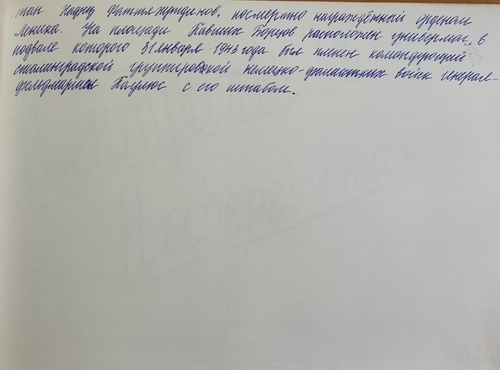 тан Кадыр Фаттяхутдинов, посмертно награждённый орденом
Ленина. На площади Павших Борцов расположен универмаг, в
подвале которого 31 января 1943 года был пленен командующий
сталинградской группировкой немецко-фашистких войск генерал-
фельдмаршал Паулюс с его штабом.
Набережная